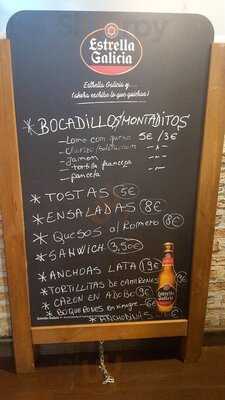 Estrella
Galicia
Estrella Galicia y...
(ahora escribe lo que quieras)
*BOCADILLOS/MONTADITOS
-Lomo con queso 5€/3€
-chorizo/salchichón - -
-Jamón - -
-tortilla francesa - -
-panceta - -
* TOSTAS 5€
* ENSALADAS 8€
* QUESOS al Romero 8€
* SANWICH 3,90€
* ANCHOAS LATA 19€
* TORTILLITAS DE CAMARONES
* CAZON EN ADOBO 9€
* BOQUERONES EN vinagre 6€